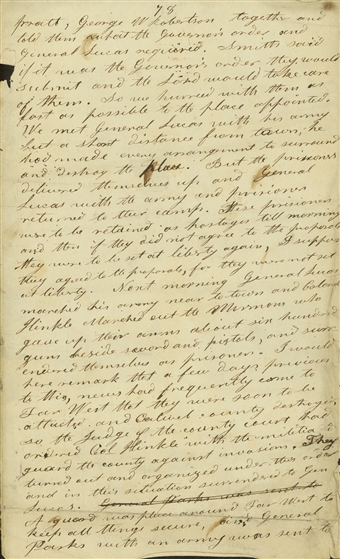 73
pratt, George W Robertson together and
told them what the Governor's order and
General Lucas required. Smith said
if it was the Governor's order they would
submit and the Lord would take care
of them. So we hurried with them as
fast as possible to the place appointed.
We met General Lucas with his army
but a short distance from town; he
had made every arrangement to surround
and destroy the place. But the prisoners
delivered themselves up and General
Lucas with the army and prisoners
returned to their camp. These prisoners
were to be retained as hostages till morning
and then if they did not agree to the proposals
they were to be set at liberty again, I suppose
they agreed to the proposals, for they were not set
at liberty. Next morning General Lucas
marched his army near to town and Colonel
Hinkle marched out the Mormons who
gave up their arms about six hundred
guns beside sword and pistols, and surr
endred themselves as prisoners. I would
here remark that a few days previous
to this, news had frequently come to
Far West that they were soon to be
attacted and Caldwel county destroyed,
so the Judge of the county court had
ordered Col Hinkle with the militia to
guard the county against invasion. They
turned out and organized under this order
and in this situation surrendred to Gen
Lucas. General Parks was sent to
A guard was place around Far West to
keep all things secure, and General
Parks with an army was sent to